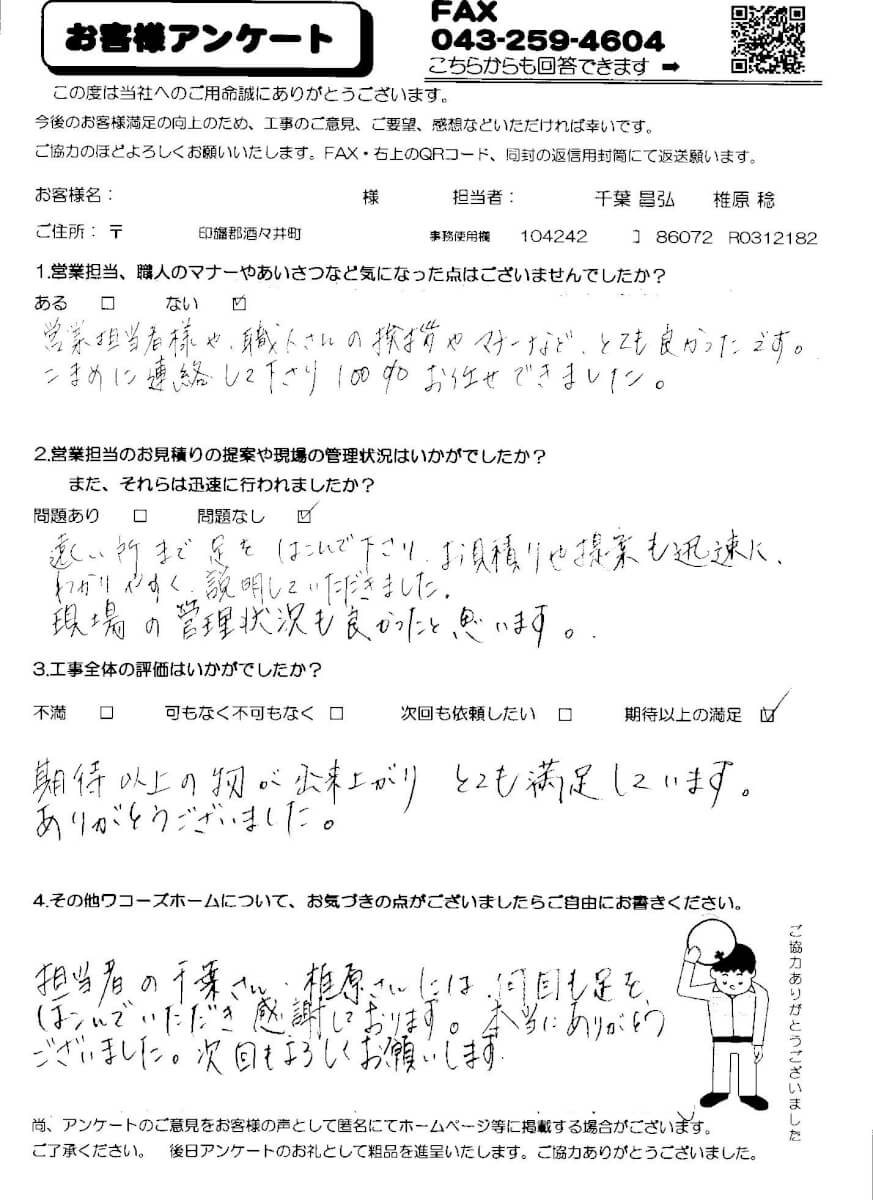 お客様アンケート
FAX
043-259-4604
こちらからも回答できます ➡
この度は当社へのご用命誠にありがとうございます。
今後のお客様満足の向上のため、工事のご意見、ご要望、感想などいただければ幸いです。
ご協力のほどよろしくお願いいたします。FAX・右上のQRコード、同封の返信用封筒にて返送願います。
お客様名： 様 担当者： 千葉 昌弘 椎原 稔
ご住所：〒 印旛郡酒々井町 事務使用欄 104242 ] 86072 R0312182
1.営業担当、職人のマナーやあいさつなど気になった点はございませんでしたか？
ある □ ない ☑
営業担当者様や、職人さんの挨拶やマナーなど、とても良かったです。
こまめに連絡して下さり100%お任せできました。
2.営業担当のお見積りの提案や現場の管理状況はいかがでしたか？
また、それらは迅速に行われましたか？
問題あり □ 問題なし ☑
遠い所まで足をはこんで下さり、お見積りや提案も迅速に、
わかりやすく、説明していただきました。
現場の管理状況も良かったと思います。
3.工事全体の評価はいかがでしたか？
不満 □ 可もなく不可もなく □ 次回も依頼したい □ 期待以上の満足 ☑
期待以上の物が出来上がり とても満足しています。
ありがとうございました。
4.その他ワコーズホームについて、お気づきの点がございましたらご自由にお書きください。
担当者の千葉さん、椎原さんには、何回も足を、
はこんでいただき感謝しております。本当にありがとう
ございました。次回もよろしくお願いします
ご協力ありがとうございました
尚、アンケートのご意見をお客様の声として匿名にてホームページ等に掲載する場合がございます。
ご了承ください。 後日アンケートのお礼として粗品を進呈いたします。ご協力ありがとうございました。